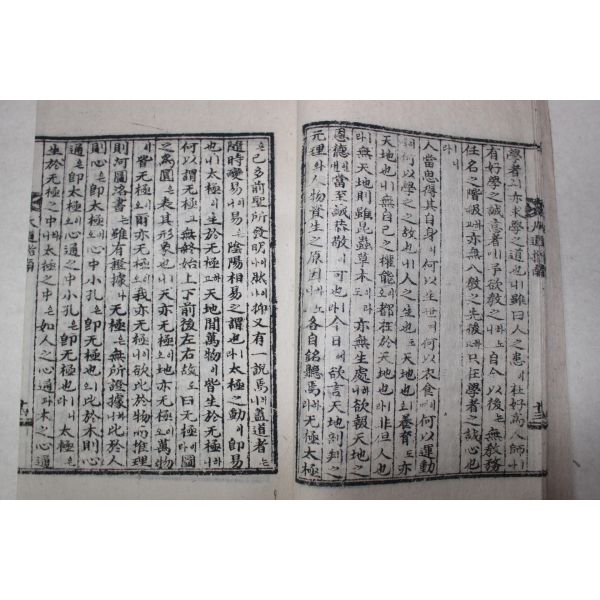 學者ㅣ亦求學之道也ㅣ니雖曰人之患이在好爲人師ㅣ나
有好學之誠意者ㅣ면予欲敎之ㅣ니自今以後는無敎務
任名之階級고亦無入敎之先後고只在學者之誠心也
ㅣ라
人當思得其自身이何以生世며何以衣食며何以運動
며何以學之之故也ㅣ니人之生也ㅣ도天地也ㅣ오養育도亦
天地也ㅣ니無自己之權能고都在於天地也ㅣ라非但人也
ㅣ라無天地則雖昆蟲草木이라도亦無生處니欲報天地
恩德인當至誠恭敬이可也ㅣ니今日에欲言天地剖判之
元理와人物資生之原因니各自銘聽焉라无極太極
은已多前聖所發明이나然이나抑又有一說焉니蓋道者는
隨時變易이니易은陰陽相易之謂也ㅣ라太極之動이卽易
也ㅣ니太極이生於无極고天地間萬物이皆生於无極니
何以謂无極고无終始上下前後左右故로曰无極이라
之爲圓은表其形象也ㅣ니天亦无極이오地亦无極이오萬物
이皆无極이오爾亦无極이오我亦无極이니欲比於物而推理
則河圖洛書는雖有證據나无極은無所證據나比於人
則心은卽太極이오心通之中小孔은卽无極也ㅣ오比於木則心
通은卽太極이오心中小孔은卽无極也ㅣ니太極
生於无極之中은如人之心通과木之心通